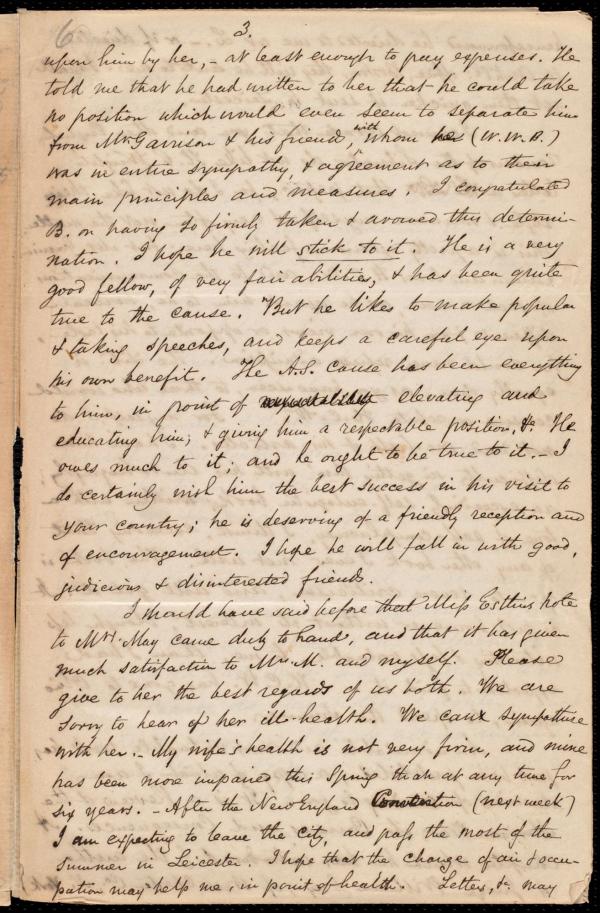 3.
upon him by her, - at least enough to pay expenses. He
told me that he had written to her that he could take
no position which would even seem to separate him
from Mr. Garrison & his friends, with whom he (W.W.B.)
was in entire sympathy, & agreement as to their
main principles and measures. I congratulated
B. on having so firmly taken & avowed this determi-
nation. I hope he will stick to it. He is a very
good fellow, of very fair abilities, & has been quite
true to the cause. But he likes to make popular
& taking speeches, and keeps a careful eye upon
his own benefit. The A.S. cause has been everything
to him, in point of respectability elevating and
educating him, & giving him a respectable position, &c. He
owes much to it; and he ought to be true to it. - I
do certainly wish him the best success in his visit to
your country; he is deserving of a friendly reception and
of encouragement. I hope he will fall in with good,
judicious & disinterested friends.
I should have said before that Miss Estlin's note
to Mrs. May came duly to hand, and that it has given
much satisfaction to Mrs. M. and myself. Please
give to her the best regards of us both. We are
sorry to hear of her ill-health. We can sympathise
with her. - My wife's health is not very firm, and mine
has been more impaired this Spring than at any time for
six years. - After the New England Convention (next week)
I am expecting to leave the city, and pass the most of the
summer in Leicester. I hope that the change of air & occu-
pation may help me, in point of health. Letters, &c. may